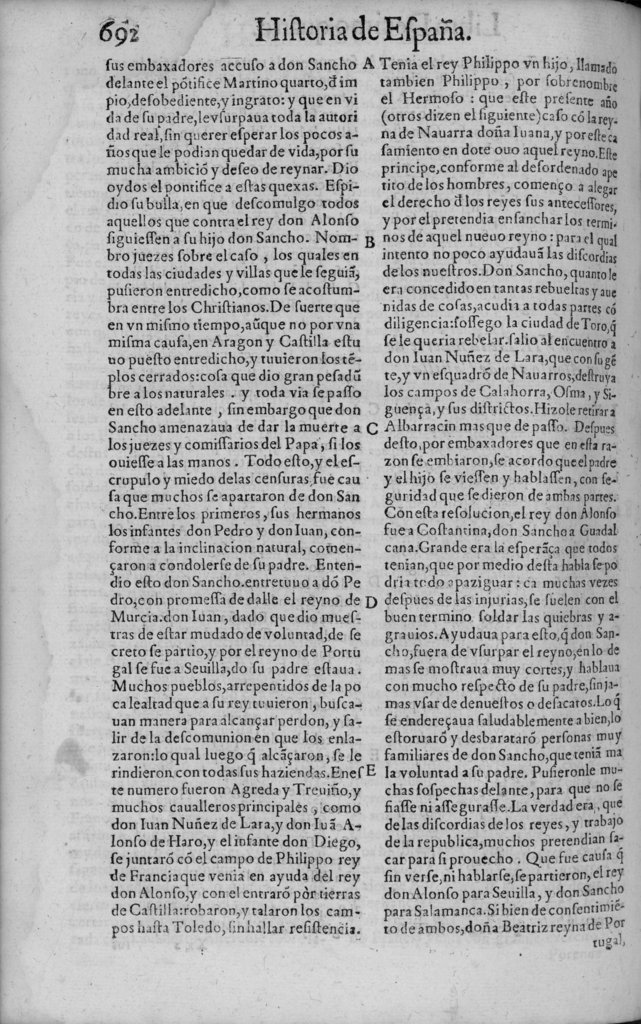 692 Historia de España.
sus embaxadores accuso a don Sancho
delante el põtifice Martino quarto, d̃ im
pio, desobediente, y ingrato: y que en vi
da de su padre, le vsurpaua toda la autori
dad real, sin querer esperar los pocos a-
ños que le podian quedar de vida, por su
mucha ambiciõ y deseo de reynar. Dio
oydos el pontifice a estas quexas. Espi-
dio su bulla, en que descomulgo todos
aquellos que contra el rey don Alonso
siguiessen a su hijo don Sancho. Nom-
bro juezes sobre el caso, los quales en
todas las ciudades y villas que le seguiã,
pusieron entredicho, como se acostum-
bra entre los Christianos. De suerte que
en vn mismo tiempo, aũque no por vna
misma causa, en Aragon y Castilla estu
uo puesto entredicho, y tuuieron los tẽ-
plos cerrados: cosa que dio gran pesadũ
bre a los naturales. y toda via se passo
en esto adelante, sin embargo que don
Sancho amenazaua de dar la muerte a
los juezes y comissarios del Papa, si los
ouiesse a las manos. Todo esto, y el es-
crupulo y miedo de las censuras, fue cau
sa que muchos se apartaron de don San
cho. Entre los primeros, sus hermanos
los infantes don Pedro y don Iuan, con-
forme a la inclinacion natural, comen-
çaron a condolerse de su padre. Enten-
dio esto don Sancho. entretuuo a dõ Pe
dro, con promessa de dalle el reyno de
Murcia. don Iuan, dado que dio mues-
tras de estar mudado de voluntad, de se
creto se partio, y por el reyno de Portu
gal se fue a Seuilla, do su padre estaua.
Muchos pueblos, arrepentidos de la po
ca lealtad que a su rey tuuieron, busca-
uan manera para alcançar perdon, y sa-
lir de la descomunion en que los enla-
zaron: lo qual luego q̃ alcãçaron, se le
rindieron con todas sus haziendas. Enes
te numero fueron Agreda y Treuiño, y
muchos caualleros principales, como
don Iuan Nuñez de Lara, y don Iuã A-
lonso de Haro, y el infante don Diego,
se juntarõ cõ el campo de Philippo rey
de Francia que venia en ayuda del rey
don Alonso, y con el entrarõ por tierras
de Castilla: robaron, y talaron los cam-
pos hasta Toledo, sin hallar resistencia.
A
B
C
D
E
Tenia el rey Philippo vn hijo, llamado
tambien Philippo, por sobrenombre
el Hermoso: que este presente año
(otros dizen el siguiente) caso cõ la rey-
na de Nauarra doña Iuana, y por este ca
samiento en dote ouo aquel reyno. Este
principe, conforme al desordenado ape
tito de los hombres, començo a alegar
el derecho d̃ los reyes sus antecessores,
y por el pretendia ensanchar los termi-
nos de aquel nueuo reyno: para el qual
intento no poco ayudauã las discordias
de los nuestros. Don Sancho, quanto le
era concedido en tantas rebueltas y aue
nidas de cosas, acudia a todas partes cõ
diligencia: sossego la ciudad de Toro, q̃
se le queria rebelar. salio al encuentro a
don Iuan Nuñez de Lara, que con su gẽ
te, y vn esquadrõ de Nauarros, destruya
los campos de Calahorra, Osma, y Si-
guença, y sus districtos. Hizole retirar a
Albarracin mas que de passo. Despues
desto, por embaxadores que en esta ra-
zon se embiaron, se acordo que el padre
y el hijo se viessen y hablassen, con se-
guridad que se dieron de ambas partes.
Con esta resolucion, el rey don Alonso
fue a Costantina, don Sancho a Guadal
cana. Grande era la esperãça que todos
tenian, que por medio desta habla se po
dria todo apaziguar: ca muchas vezes
despues de las injurias, se suelen con el
buen termino soldar las quiebras y a-
grauios. Ayudaua para esto, q̃ don San-
cho, fuera de vsurpar el reyno, en lo de
mas se mostraua muy cortes, y hablaua
con mucho respecto de su padre, sin ja-
mas vsar de denuestos o desacatos. Lo q̃
se endereçaua saludablemente a bien, lo
estoruarõ y desbaratarõ personas muy
familiares de don Sancho, que teniã ma
la voluntad a su padre. Pusieronle mu-
chas sospechas delante, para que no se
fiasse ni assegurasse. La verdad era, que
de las discordias de los reyes, y trabajo
de la republica, muchos pretendian sa-
car para si prouecho. Que fue causa q̃
sin verse, ni hablarse, se partieron, el rey
don Alonso para Seuilla, y don Sancho
para Salamanca. Si bien de consentimiẽ-
to de ambos, doña Beatriz reyna de Por
tugal,